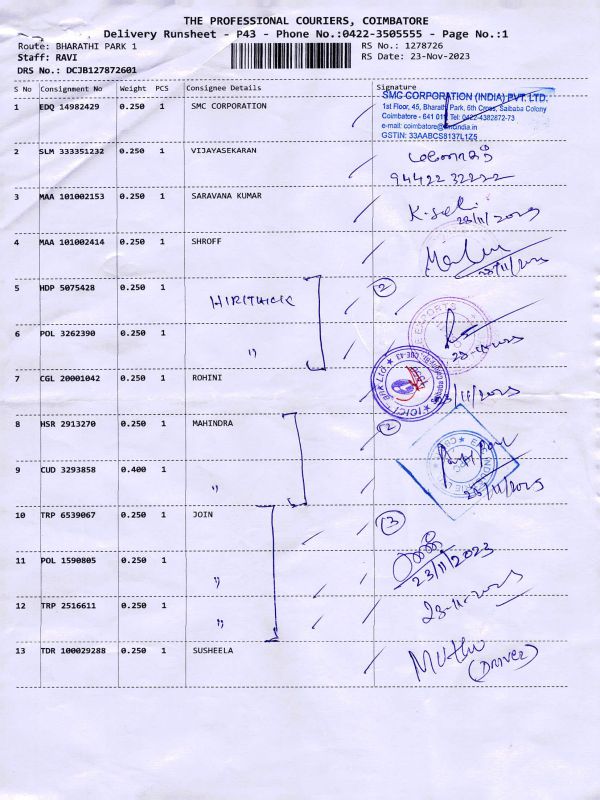 THE PROFESSIONAL COURIERS, COIMBATORE
Delivery Runsheet - P43 - Phone No.:0422-3505555 - Page No.:1
Route: BHARATHI PARK 1 RS No.: 1278726
Staff: RAVI RS Date: 23-Nov-2023
DRS No.: DCJB127872601
S No Consignment No Weight PCS Consignee Details Signature
1 EDQ 14982429 0.250 1 SMC CORPORATION
SMC CORPORATION (INDIA) PVT. LTD.
1st Floor, 45, Bharathi Park, 6th Cross, Saibaba Colony
Coimbatore - 641 011 Tel: 0422-4382872-73
GSTIN: 33AABCS8137L1Z5
2 SLM 333351232 0.250 1 VIJAYASEKARAN
94422 32222
3 MAA 101002153 0.250 1 SARAVANA KUMAR
23/11/2023
4 MAA 101002414 0.250 1 SHROFF
23/11/2023
5 HDP 5075428 0.250 1 HIRITHICK 2
6 POL 3262390 0.250 1 "
7 CGL 20001042 0.250 1 ROHINI
23/11/2023
8 HSR 2913270 0.250 1 MAHINDRA 2
9 CUD 3293858 0.400 1 "
23/11/2023
10 TRP 6539067 0.250 1 JOIN 3
11 POL 1590805 0.250 1 "
23/11/2023
12 TRP 2516611 0.250 1 "
23-11-2023
13 TDR 100029288 0.250 1 SUSHEELA
Muthu
(Driver)